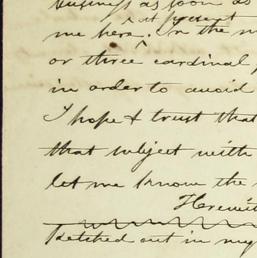 business as soon as
at present
me here. In the m
or three cardinal
in order to avoid
I hope & trust that
that subject with
let me know the
Herewit
sketched out in my